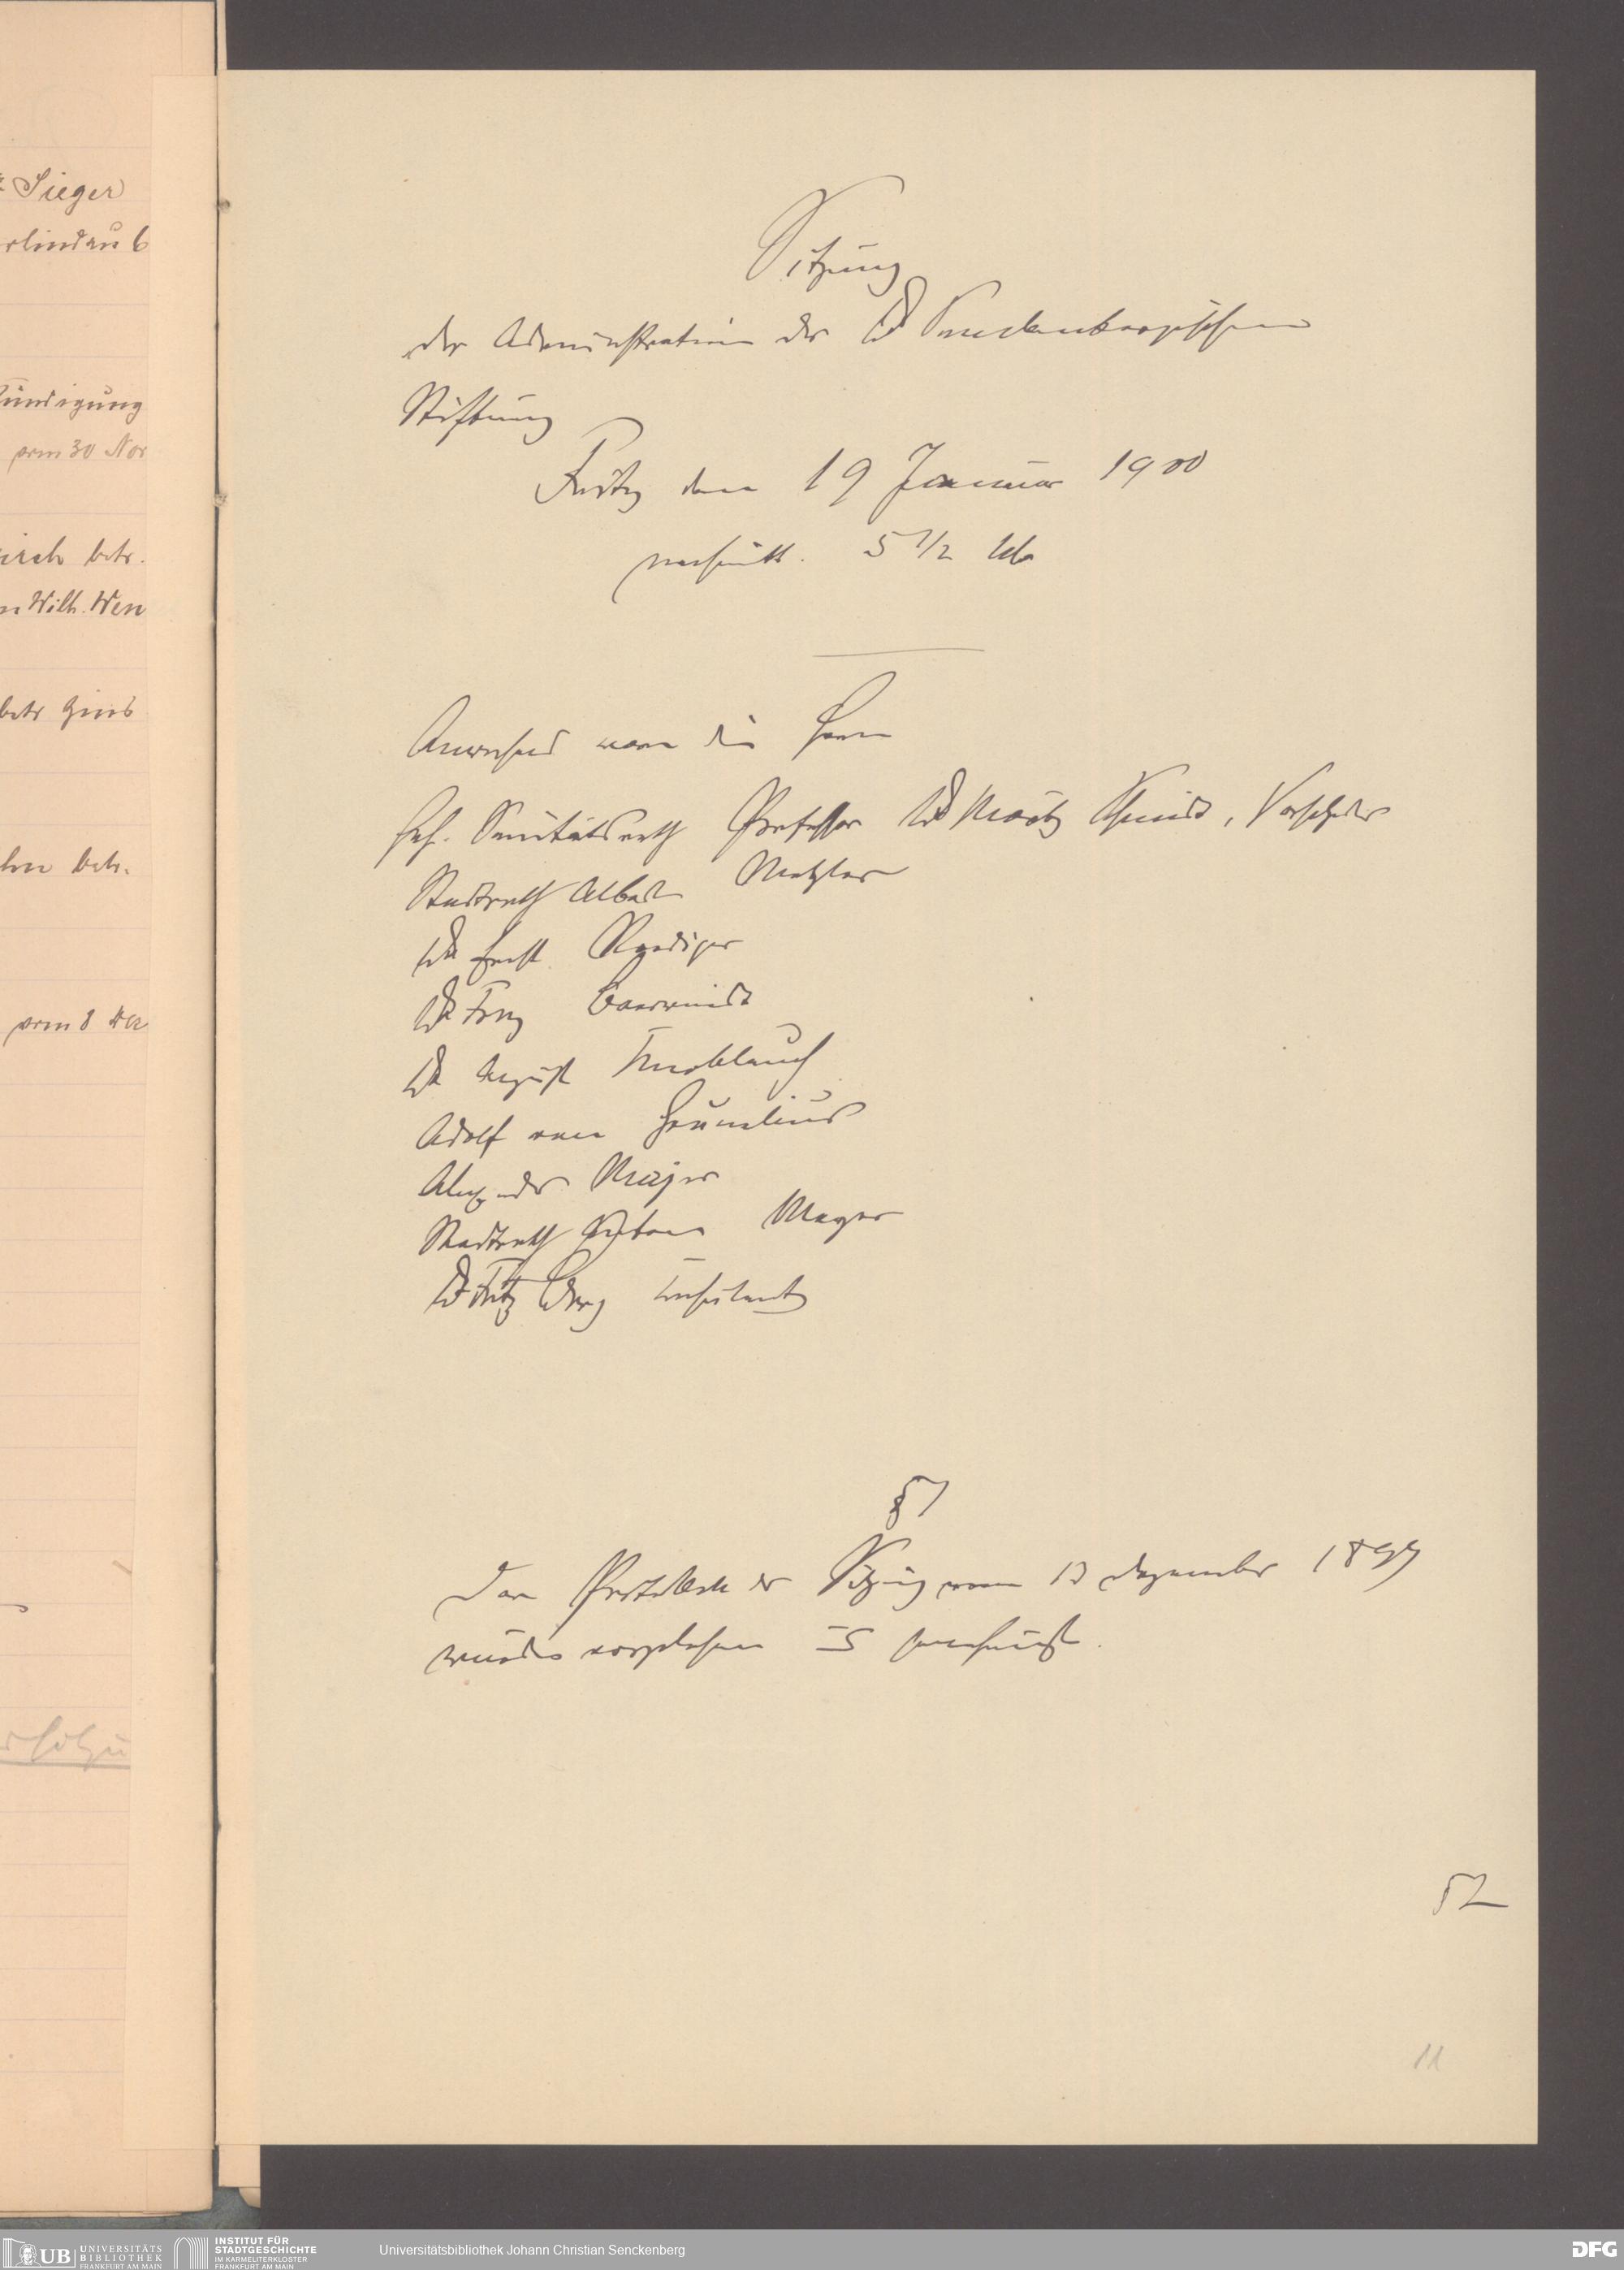 Sieger
rlindau 6
kündigung
vom 30 Nov
betr.
Wilh. Wen
betr Zins
betr.
vom 8 Dez
Sitzung
der Administration der Dr Senckenbergischen
Stiftung
Freitag den 19 Januar 1900
nachmitt. 5 1/2 Uhr
Anwesend waren die Herrn
Geh. Sanitätsrath Professor Dr Moritz Schmidt, Vorsitzender
Stadtrath Albert Metzler
Dr Ernst Roediger
Dr Franz Baerwindt
Dr August Knoblauch
Adolf von Grunelius
Alexander Majer
Stadtrath Anton Meyer
Dr Fritz Berg Consulent
§ 1
Das Protokoll der Sitzung vom 13 Dezember 1899
wurde vorgelesen u genehmigt.
§ 2
11
UB UNIVERSITÄTS
BIBLIOTHEK
FRANKFURT AM MAIN
INSTITUT FÜR
STADTGESCHICHTE
IM KARMELITERKLOSTER
FRANKFURT AM MAIN
Universitätsbibliothek Johann Christian Senckenberg
DFG